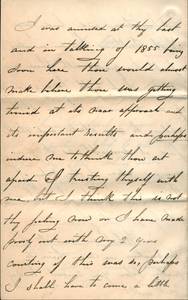 I was amused at thy last
and in talking of 1855 being
soon here thou would almost
make believe thou was getting
timid at its near approach and
its important results and perhaps
induce me to think thou art
afraid of trusting thyself with
me but I think this is not
thy feeling now or I have made
poorly out with my 2 years
courting if this was so, perhaps
I shall have to come a little